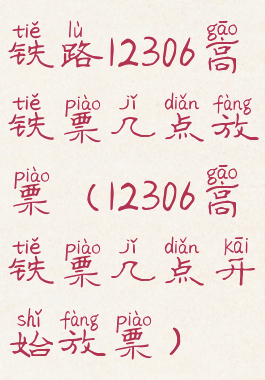 tiě lù gāo
铁路12306高
tiě piào jǐ diǎn fàng
铁票几点放
piào gāo
票（12306高
tiě piào jǐ diǎn kāi
铁票几点开
shǐ fàng piào
始放票）